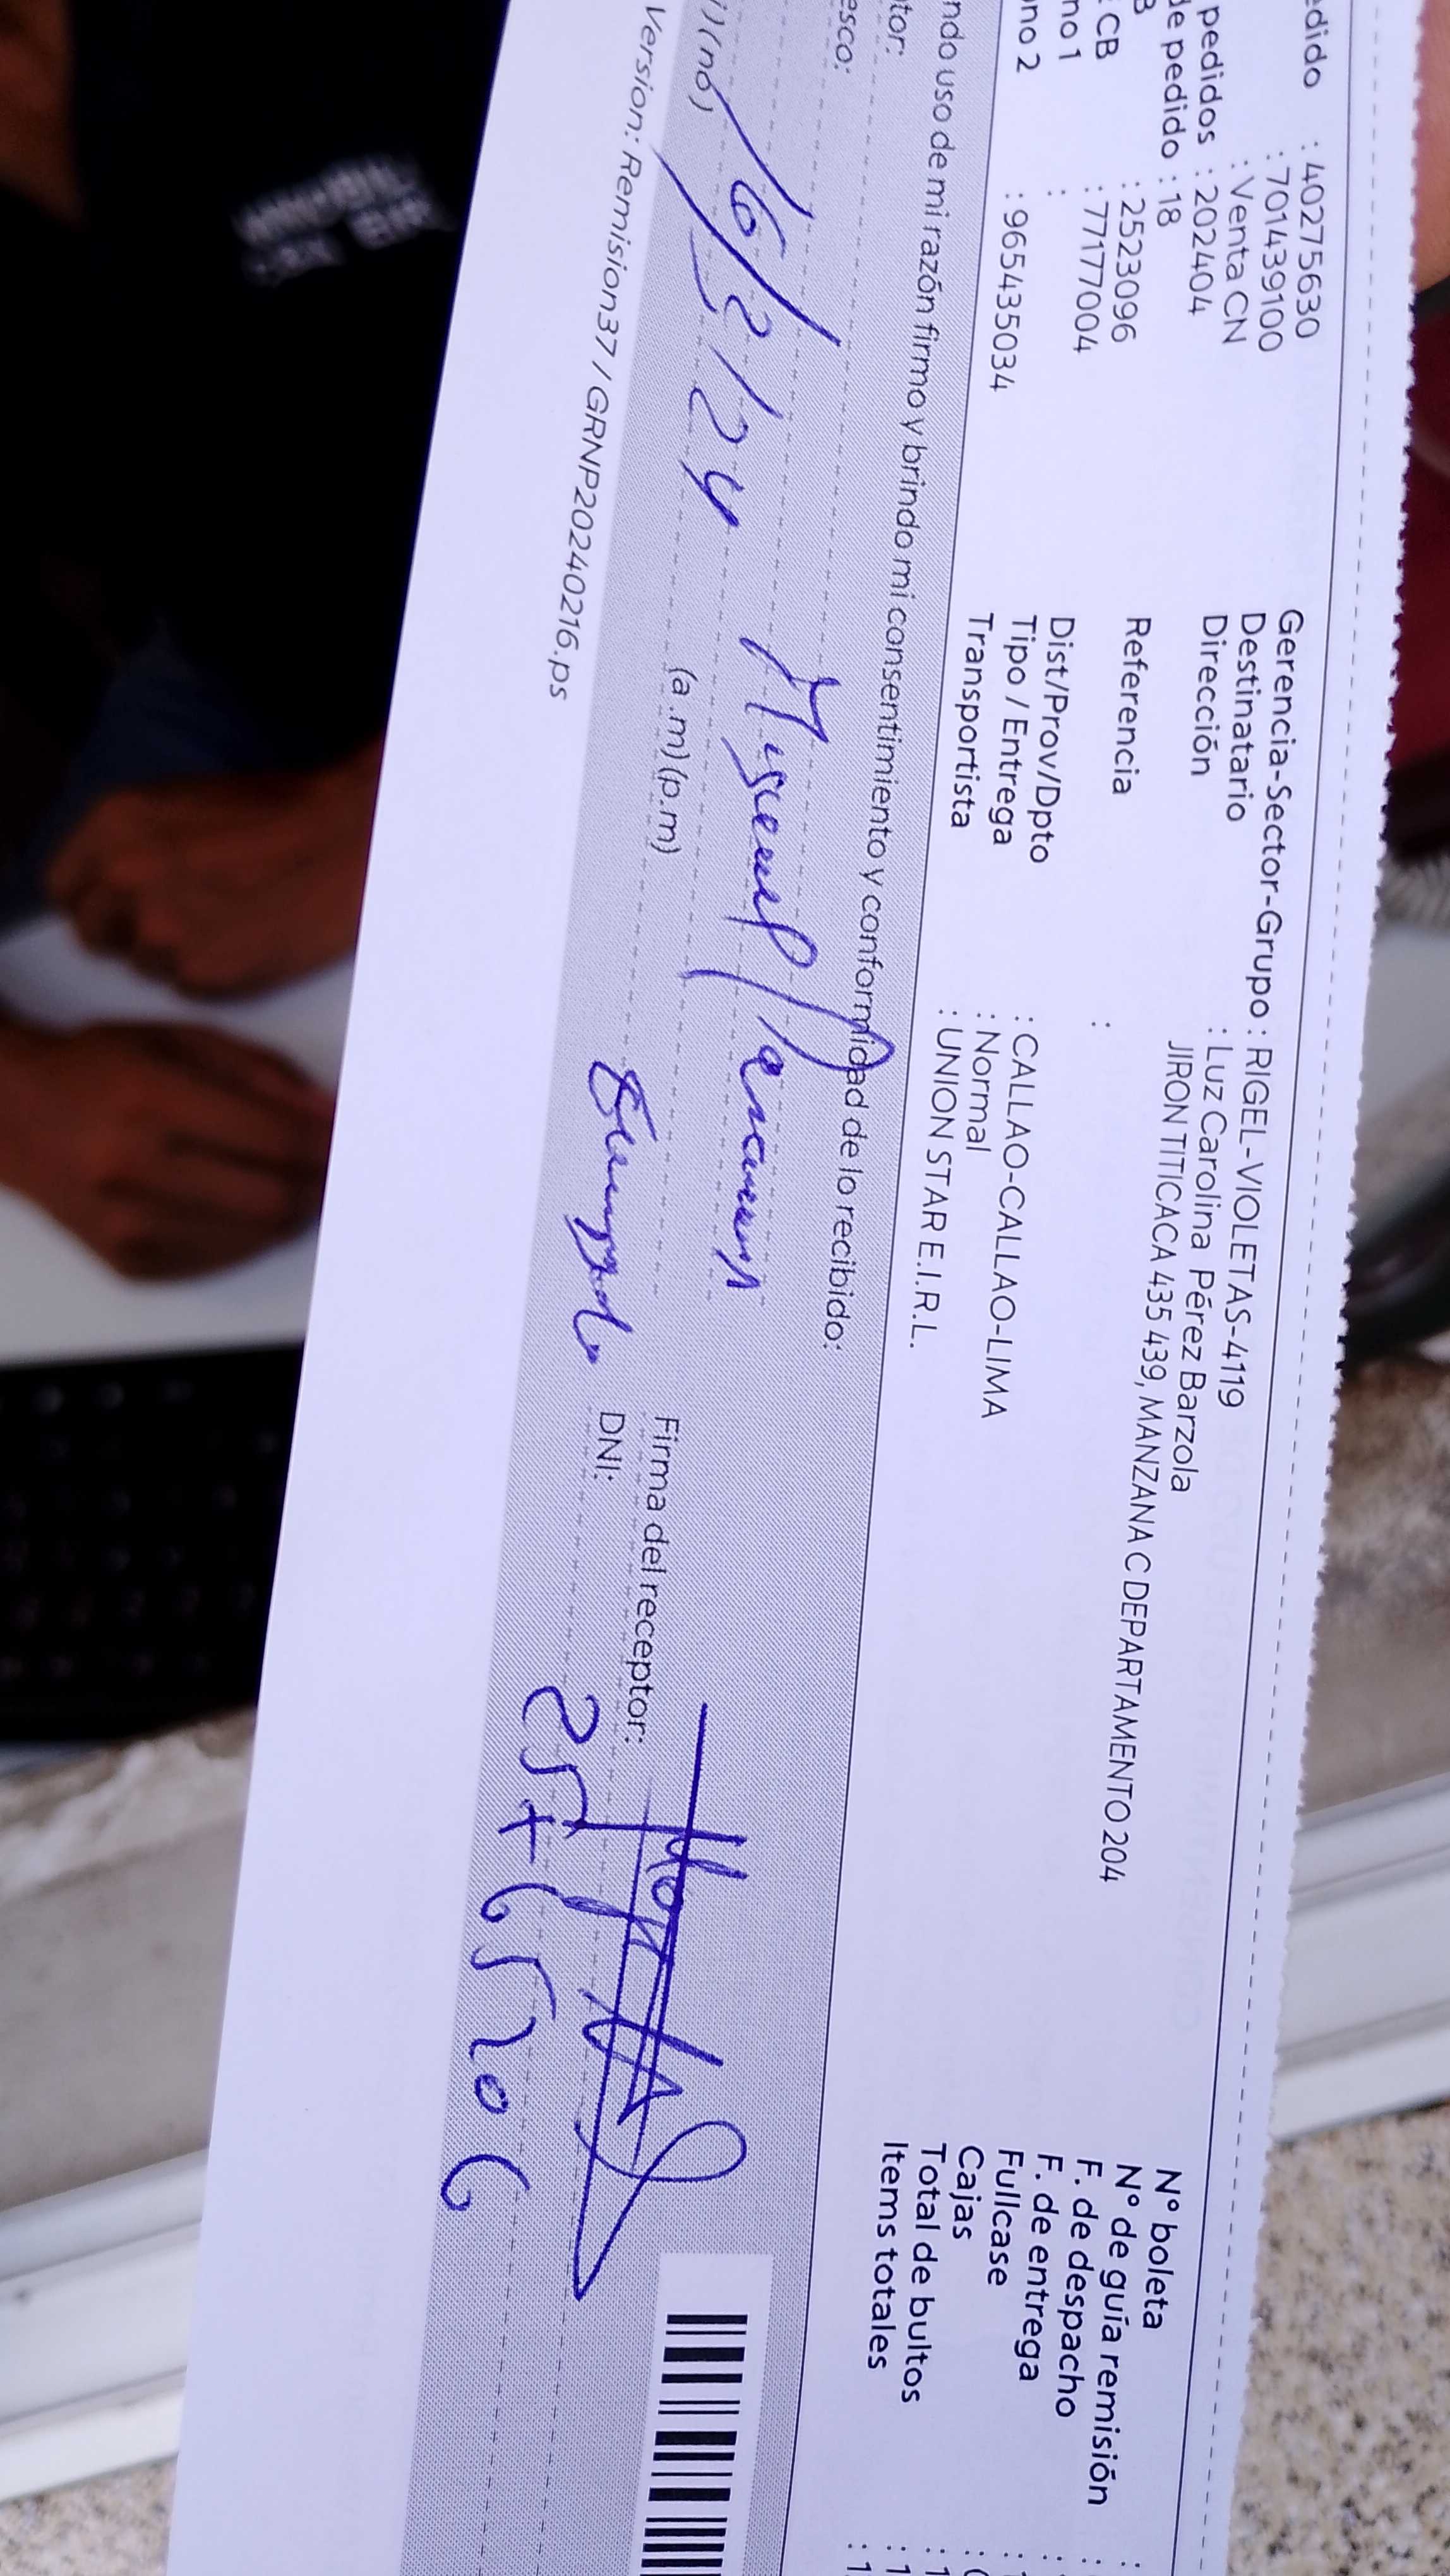 edido : 40275630
: 701439100
: Venta CN
pedidos : 202404
de pedido : 18
B : 2523096
CB : 77177004
no 1 :
no 2 : 965435034
Gerencia-Sector-Grupo : RIGEL-VIOLETAS-4119
Destinatario : Luz Carolina Pérez Barzola
Dirección JIRON TITICACA 435 439, MANZANA C DEPARTAMENTO 204
Referencia :
Dist/Prov/Dpto : CALLAO-CALLAO-LIMA
Tipo / Entrega : Normal
Transportista : UNION STAR E.I.R.L.
N° boleta
N° de guía remisión :
F. de despacho :
F. de entrega :
Fullcase :
Cajas :
Total de bultos : 1
Items totales : 1
ndo uso de mi razón firmo y brindo mi consentimiento y conformidad de lo recibido:
tor:
esco:
i) (no) 16/2/24
(a.m) (p.m)
Firma del receptor:
DNI: 25765206
Version: Remision37 / GRNP20240216.ps